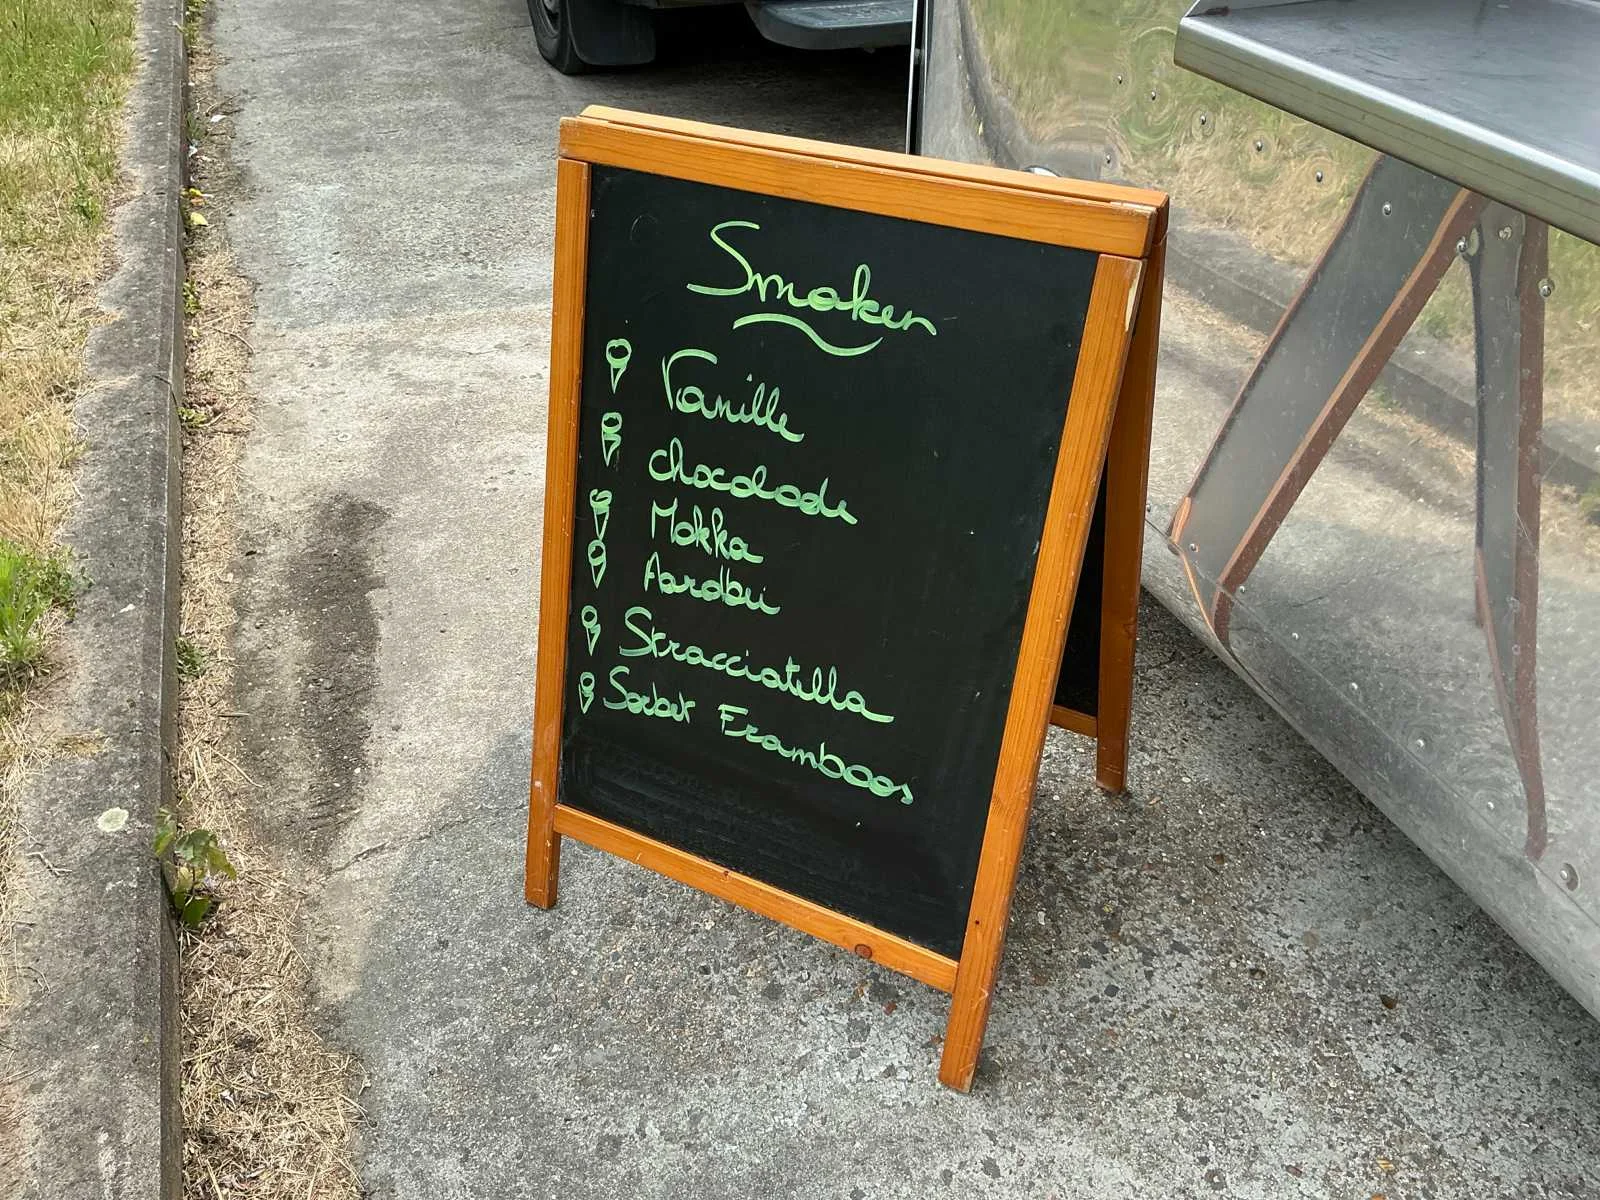 Smaken
Vanille
chocolade
Mokka
Aardbei
Stracciatella
Sorbet Framboos